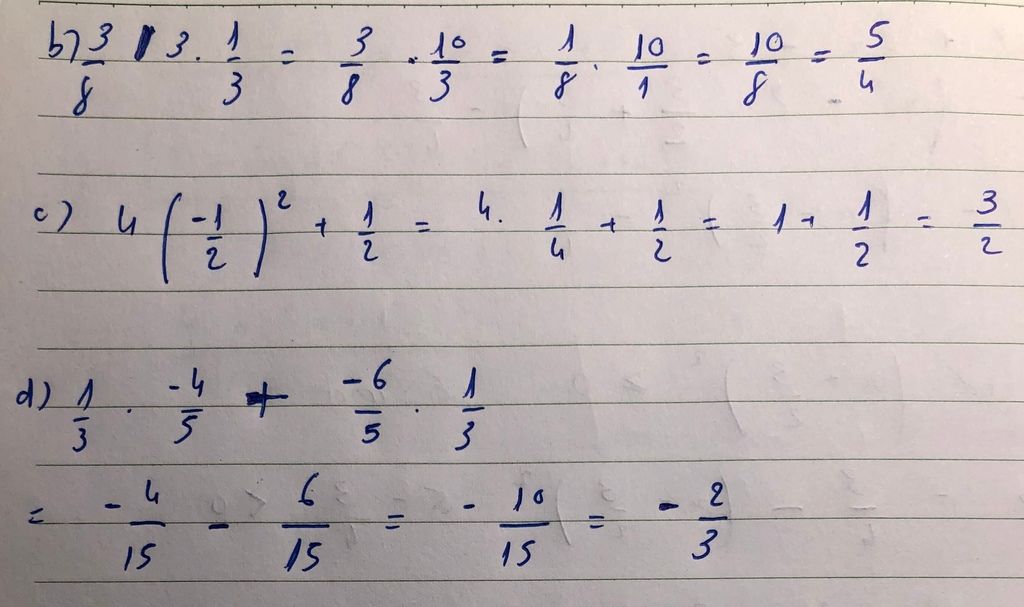 b) 3/8 3 · 1/3 = 3/8 · 10/3 = 1/8 · 10/1 = 10/8 = 5/4
c) 4 (-1/2)² + 1/2 = 4 · 1/4 + 1/2 = 1 + 1/2 = 3/2
d) 1/3 · -4/5 + -6/5 · 1/3
= -4/15 - 6/15 = -10/15 = -2/3